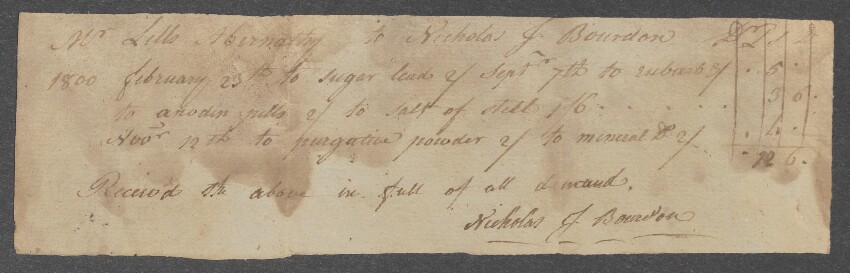 Mr Lills Abernathy to Nicholas J. Bourdon Dr £ s d
1800 february 23th to sugar lead 2/ Septr 7th to rubarb 3/ . 5 .
to anodin pills 2/ to Salt of Stell 1/6 . . . . . . . 3 6 .
Novr 12th to purgative powder 2/ to mineral Do 2/ . 4 .
. 12 6 .
Receivd the above in full of all demand.
Nicholas J. Bourdon